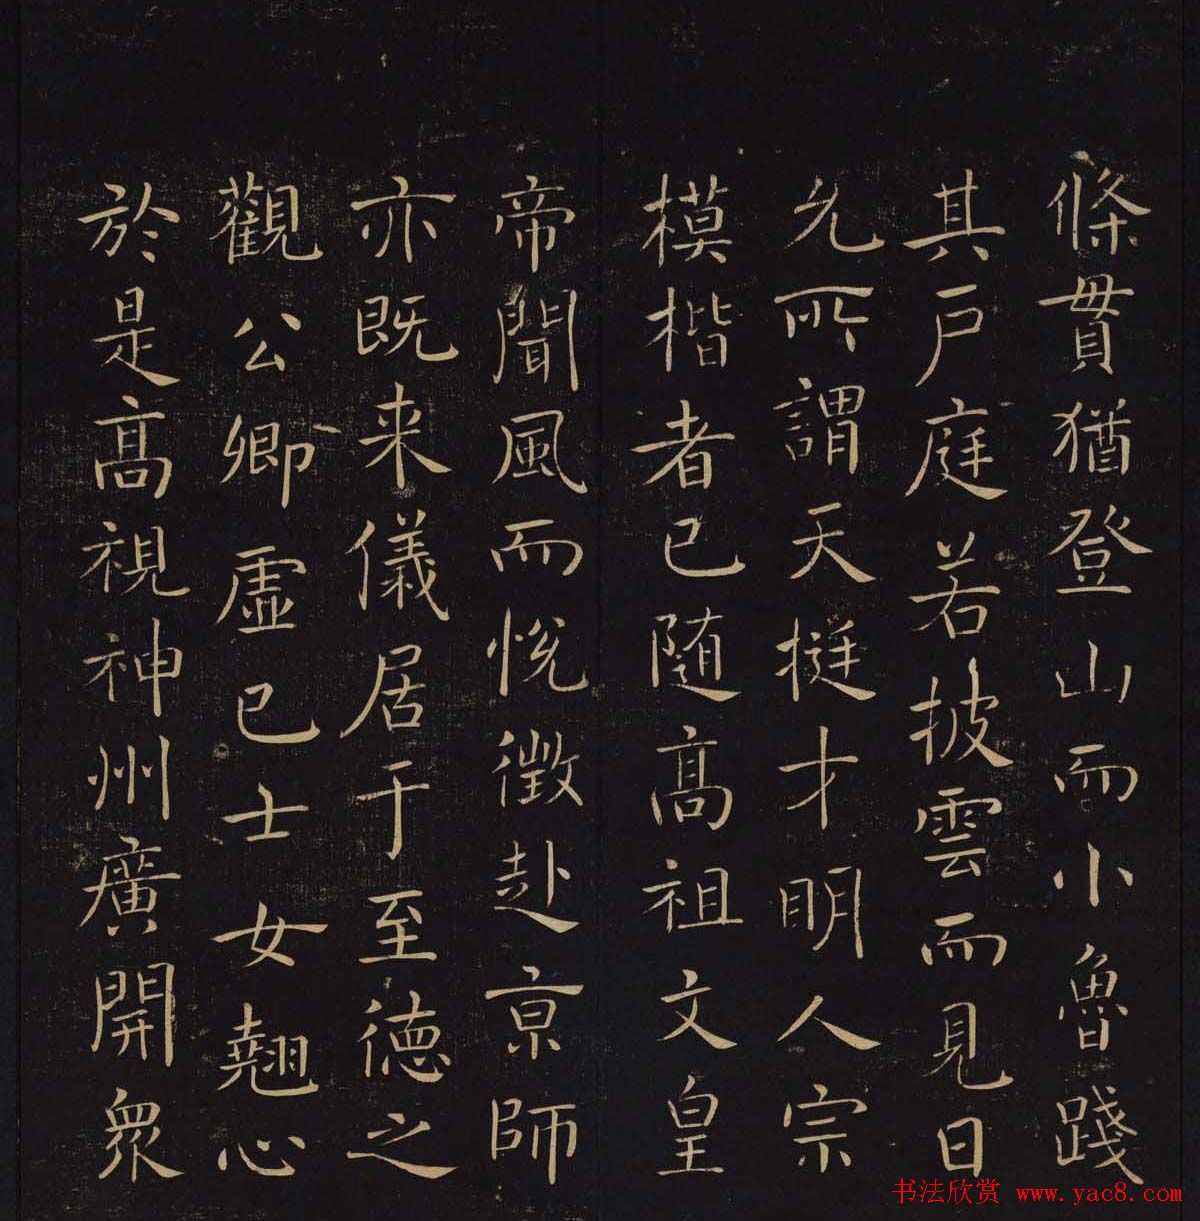 條貫猶登山而小魯踐
其戶庭若披雲而見日
允所謂天挺才明人宗
模楷者已隨高祖文皇
帝聞風而悅徵赴京師
亦既来儀居于至德之
觀公卿虛己士女翹心
於是高視神州廣開眾
书法欣赏 www.yac8.com